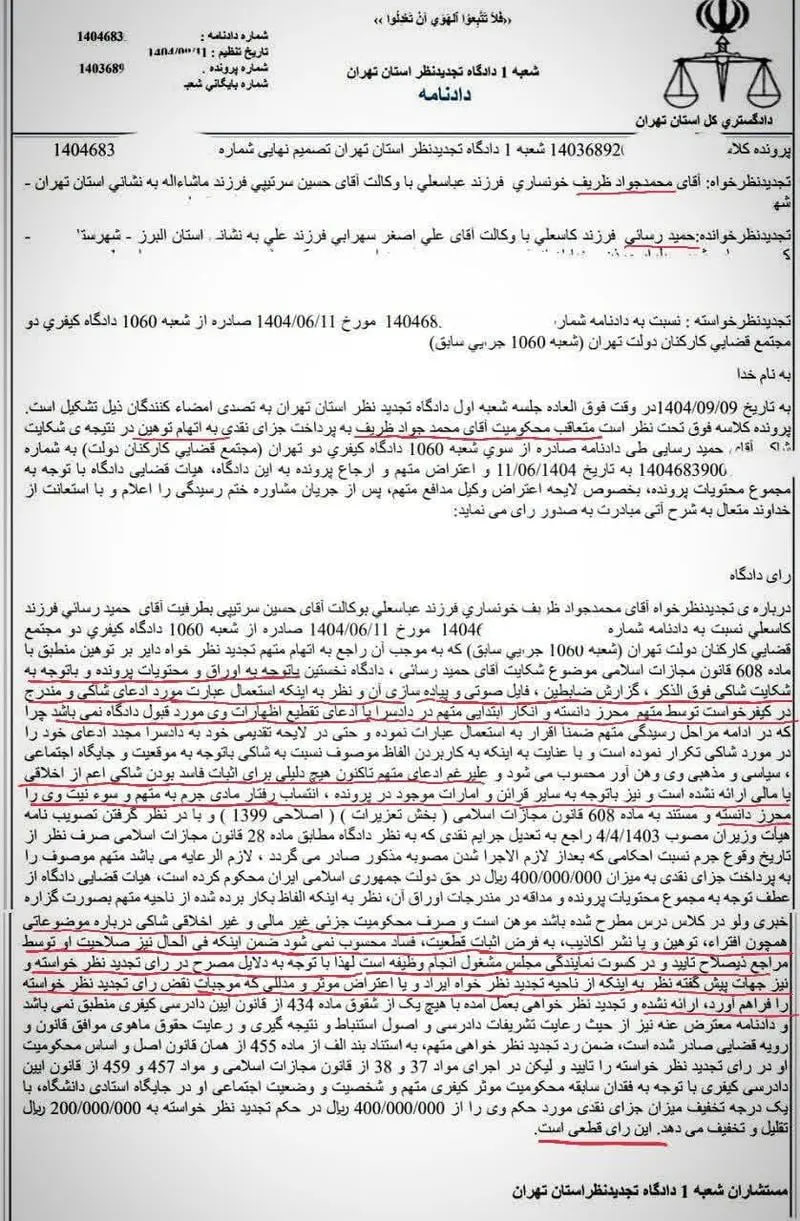 «فَلا تَتَّبِعُوا الْهَوي أَنْ تَعْدِلُوا»
شماره دادنامه : 1404683
تاریخ تنظیم :
شماره پرونده : 1403689
شماره بایگانی شعبه
شعبه 1 دادگاه تجدیدنظر استان تهران
دادنامه
دادگستري کل استان تهران
پرونده کلاسه 14036892 شعبه 1 دادگاه تجدیدنظر استان تهران تصمیم نهایی شماره 1404683
تجدیدنظرخواه: آقای محمدجواد ظریف خونساري فرزند عباسعلي با وکالت آقای حسین سرتیپي فرزند ماشاءاله به نشاني استان تهران -
تجدیدنظرخوانده: حمید رسائي فرزند کاسعلي با وکالت آقای علي اصغر سهرابي فرزند علي به نشاني استان البرز -
تجدیدنظرخواسته : نسبت به دادنامه شماره 140468 مورخ 1404/06/11 صادره از شعبه 1060 دادگاه کیفري دو
مجتمع قضایي کارکنان دولت تهران (شعبه 1060 جزایي سابق)
به نام خدا
به تاریخ 1404/09/09در وقت فوق العاده جلسه شعبه اول دادگاه تجدید نظر استان تهران به تصدی امضاء کنندگان ذیل تشکیل است.
پرونده کلاسه فوق تحت نظر است متعاقب محکومیت آقای محمد جواد ظریف به پرداخت جزای نقدی به اتهام توهین در نتیجه ی شکایت
آقای حمید رسایی طی دادنامه صادره از سوي شعبه 1060 دادگاه کیفري دو تهران (مجتمع قضایي کارکنان دولت) به شماره
1404683900 به تاریخ 11/06/1404 و اعتراض متهم و ارجاع پرونده به این دادگاه، هیات قضایی دادگاه با توجه به
مجموع محتویات پرونده، بخصوص لایحه اعتراض وکیل مدافع متهم، پس از جریان مشاوره ختم رسیدگی را اعلام و با استعانت از
خداوند متعال به شرح آتی مبادرت به صدور رای می نماید:
رای دادگاه
درباره ی تجدیدنظرخواه آقای محمدجواد ظریف خونساری فرزند عباسعلي بوکالت آقای حسین سرتیپی بطرفیت آقای حمید رسائي فرزند
کاسعلي نسبت به دادنامه شماره 1404 مورخ 1404/06/11 صادره از شعبه 1060 دادگاه کیفري دو مجتمع
قضایي کارکنان دولت تهران (شعبه 1060 جزایي سابق) که به موجب آن راجع به اتهام متهم تجدید نظر خواه دایر بر توهین منطبق با
ماده 608 قانون مجازات اسلامی موضوع شکایت آقای حمید رسائی ، دادگاه نخستین باتوجه به اوراق و محتویات پرونده و باتوجه به
شکایت شاکي فوق الذکر ، گزارش ضابطین ، فایل صوتی و پیاده سازی آن و نظر به اینکه استعمال عبارت مورد ادعای شاکی و مندرج
در کیفرخواست توسط متهم محرز دانسته و انکار ابتدایی متهم در دادسرا با ادعای تقطیع اظهارات وی مورد قبول دادگاه نمی باشد چرا
که در ادامه مراحل رسیدگی متهم ضمنا اقرار به استعمال عبارات نموده و حتی در لایحه تقدیمی خود به دادسرا مجدد ادعای خود را
در مورد شاکی تکرار نموده است و با عنایت به اینکه به کاربردن الفاظ موصوف نسبت به شاکی باتوجه به موقعیت و جایگاه اجتماعی
، سیاسی و مذهبی وی وهن آور محسوب می شود و علیرغم ادعای متهم تاکنون هیچ دلیلی برای اثبات فاسد بودن شاکی اعم از اخلاقی
یا مالی ارائه نشده است و نیز باتوجه به سایر قرائن و امارات موجود در پرونده ، انتساب رفتار مادی جرم به متهم و سوء نیت وی را
محرز دانسته و مستند به ماده 608 قانون مجازات اسلامی ( بخش تعزیرات ) ( اصلاحی 1399 ) و با در نظر گرفتن تصویب نامه
هیات وزیران مصوب 4/4/1403 راجع به تعدیل جرایم نقدی که به نظر دادگاه مطابق ماده 28 قانون مجازات اسلامی صرف نظر از
تاریخ وقوع جرم نسبت احکامی که بعداز لازم الاجرا شدن مصوبه مذکور صادر می گردد ، لازم الرعایه می باشد متهم موصوف را
به پرداخت جزای نقدی به میزان 400/000/000 ریال در حق دولت جمهوری اسلامی ایران محکوم کرده است، هیات قضایی دادگاه از
عطف توجه به مجموع محتویات پرونده و مداقه در مندرجات اوراق آن، نظر به اینکه الفاظ بکار برده شده از ناحیه متهم بصورت گزاره
خبری ولو در کلاس درس مطرح شده باشد موهن است و صرف محکومیت جزئی غیر مالی و غیر اخلاقی شاکی درباره موضوعاتی
همچون افتراء، توهین و یا نشر اکاذیب، به فرض اثبات قطعیت، فساد محسوب نمی شود ضمن اینکه فی الحال نیز صلاحیت او توسط
مراجع ذیصلاح تایید و در کسوت نمایندگی مجلس مشغول انجام وظیفه است لهذا با توجه به دلایل مصرح در رای تجدید نظر خواسته و
نیز جهات پیش گفته نظر به اینکه از ناحیه تجدید نظر خواه ایراد و یا اعتراض موثر و مدللی که موجبات نقض رای تجدید نظر خواسته
را فراهم آورد، ارائه نشده و تجدید نظر خواهی بعمل آمده با هیچ یک از شقوق ماده 434 از قانون آیین دادرسی کیفری منطبق نمی باشد
و دادنامه معترض عنه نیز از حیث رعایت تشریفات دادرسی و اصول استنباط و نتیجه گیری و رعایت حقوق ماهوی موافق قانون و
رویه قضایی صادر شده است، ضمن رد تجدید نظر خواهی متهم، به استناد بند الف از ماده 455 از همان قانون اصل و اساس محکومیت
او در رای تجدید نظر خواسته را تایید و لیکن در اجرای مواد 37 و 38 از قانون مجازات اسلامی و مواد 457 و 459 از قانون آیین
دادرسی کیفری با توجه به فقدان سابقه محکومیت موثر کیفری متهم و شخصیت و وضعیت اجتماعی او در جایگاه استادی دانشگاه، با
یک درجه تخفیف میزان جزای نقدی مورد حکم وی را از 400/000/000 ریال در حکم تجدید نظر خواسته به 200/000/000 ریال
تقلیل و تخفیف می دهد. این رای قطعی است.
مستشاران شعبه 1 دادگاه تجدیدنظر استان تهران